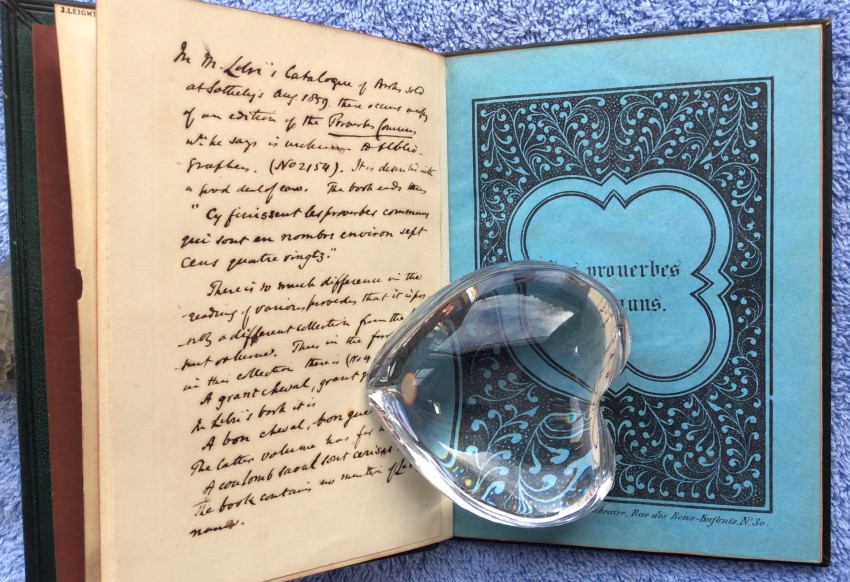 J. LEIGHT
In M. Libri's Catalogue of Books sold
at Sotheby's Aug. 1859 there occurs a copy
of an edition of the Proverbes Communs
wh. he says is unknown to Biblio-
graphers. (No 2154). It is described with
a good deal of care. The book ends thus
"Cy finissent les proverbes communs
qui sont en nombre environ sept
cens quatre vingtz."
There is so much difference in the
reading of various proverbs that it is
a different collection from the
volume. Thus in the
in this collection there is (No 4
A grant cheval, grant g
In Libri's book it is
A bon cheval, bon gue
The latter volume has for
A coulomb saoul sont cerises
The book contains no mention of
name.
prouerbes
uns.
braire, Rue des Bons-Enfants, N.° 30.